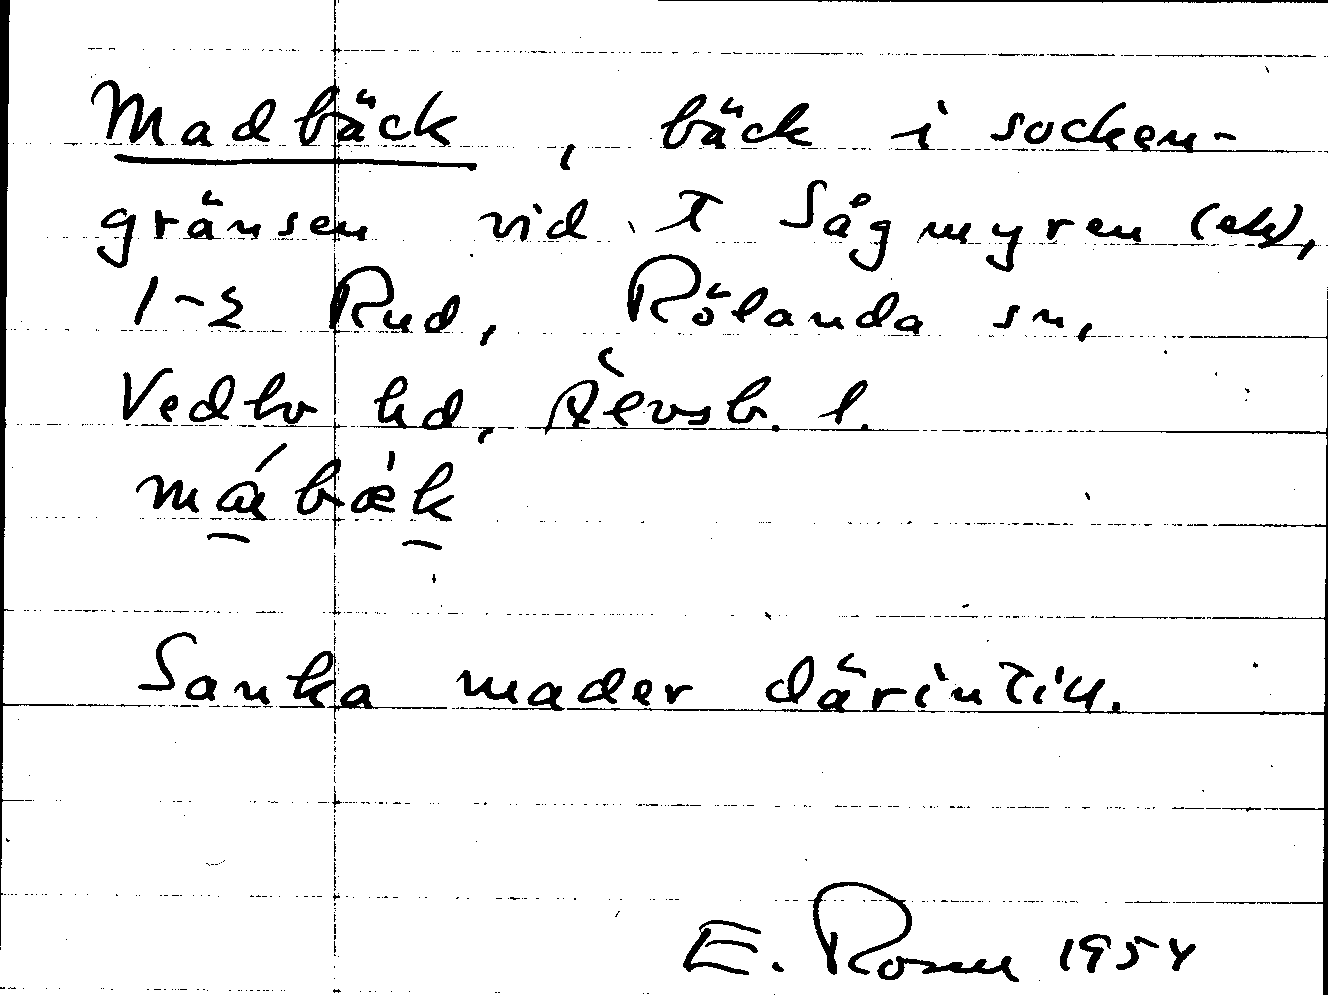 Madbäck, bäck i socken-
gränsen vid T Sågmyren (ek),
1-2 Rud, Rölanda sn,
Vedbo hd, Älvsb. l.
mábæ̀k
Sanka mader därintill.
E. Rosell 1954